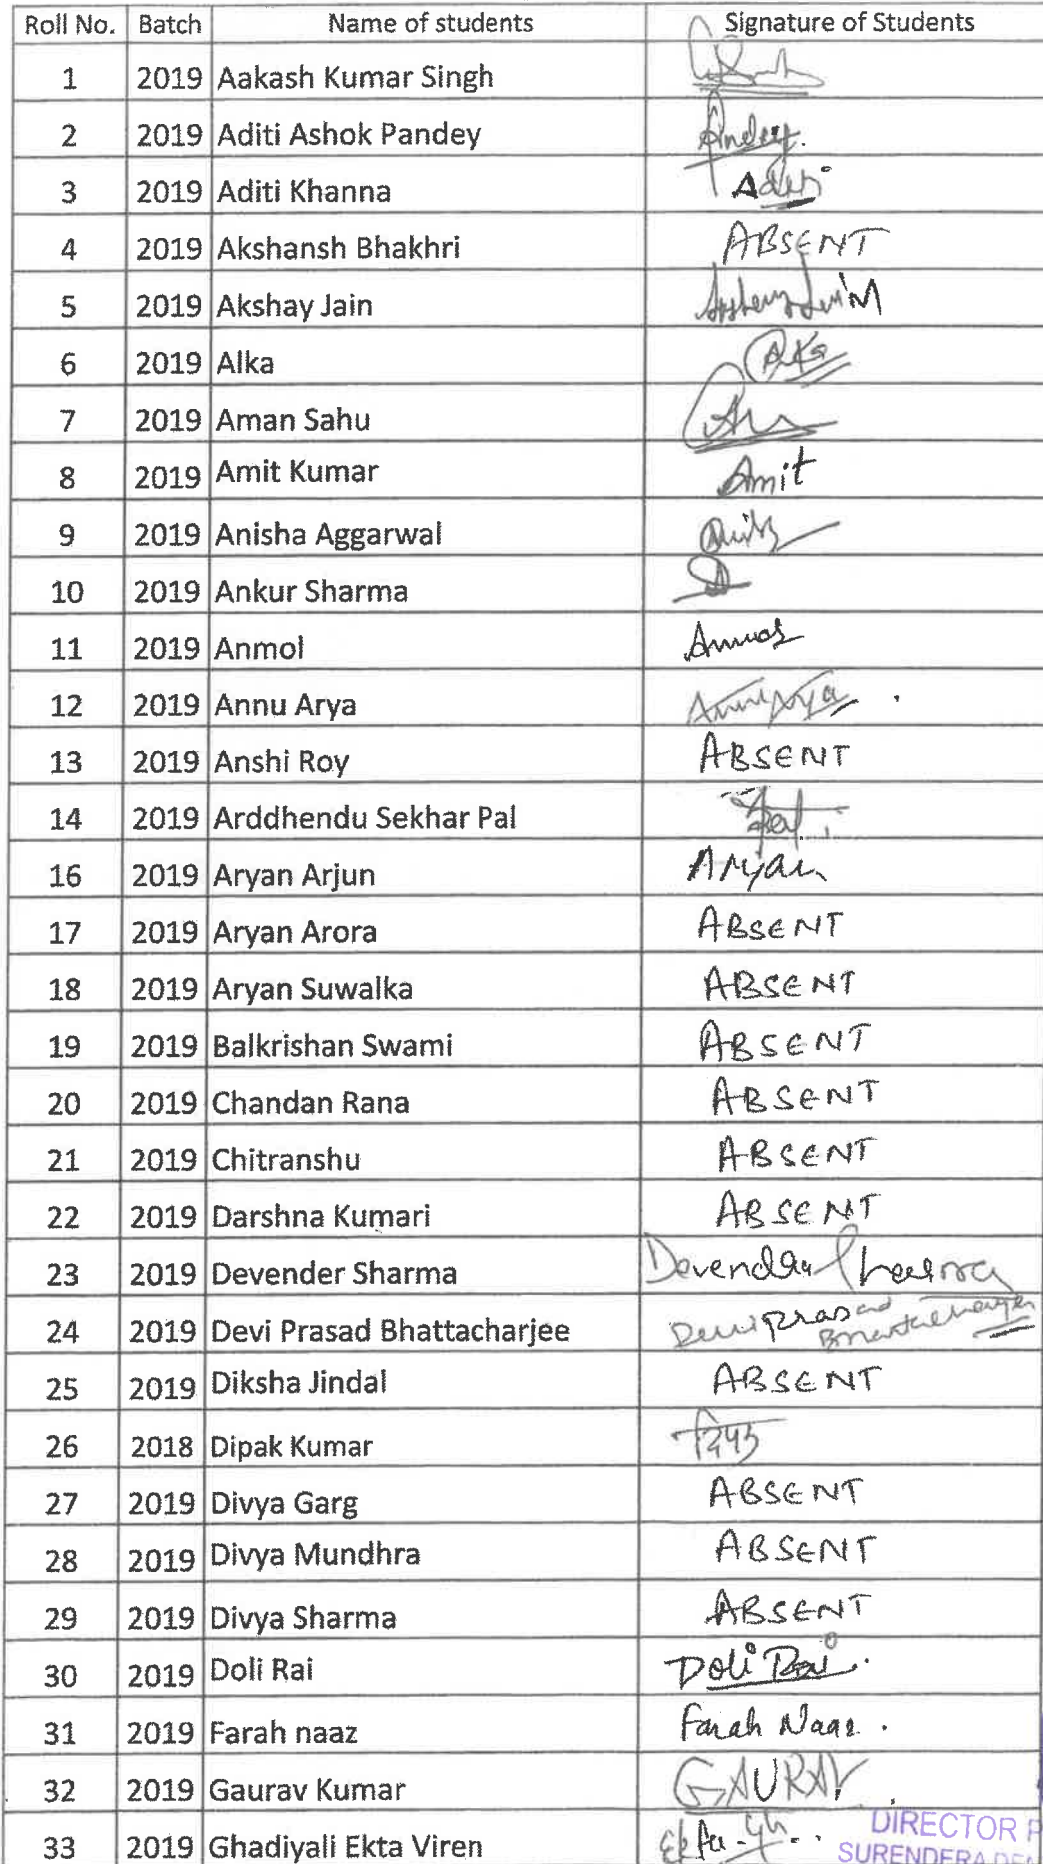 Roll No. Batch Name of students Signature of Students
1 2019 Aakash Kumar Singh
2 2019 Aditi Ashok Pandey Pandey.
3 2019 Aditi Khanna Aditi
4 2019 Akshansh Bhakhri ABSENT
5 2019 Akshay Jain
6 2019 Alka
7 2019 Aman Sahu
8 2019 Amit Kumar Amit
9 2019 Anisha Aggarwal
10 2019 Ankur Sharma
11 2019 Anmol Anmol
12 2019 Annu Arya Annu Arya
13 2019 Anshi Roy ABSENT
14 2019 Arddhendu Sekhar Pal
16 2019 Aryan Arjun Aryan
17 2019 Aryan Arora ABSENT
18 2019 Aryan Suwalka ABSENT
19 2019 Balkrishan Swami ABSENT
20 2019 Chandan Rana ABSENT
21 2019 Chitranshu ABSENT
22 2019 Darshna Kumari ABSENT
23 2019 Devender Sharma Devender Sharma
24 2019 Devi Prasad Bhattacharjee Deviprasad Bhattacharjee
25 2019 Diksha Jindal ABSENT
26 2018 Dipak Kumar
27 2019 Divya Garg ABSENT
28 2019 Divya Mundhra ABSENT
29 2019 Divya Sharma ABSENT
30 2019 Doli Rai Doli Rai.
31 2019 Farah naaz Farah Naaz.
32 2019 Gaurav Kumar GAURAV
33 2019 Ghadiyali Ekta Viren Ekta
DIRECTOR
SURENDERA